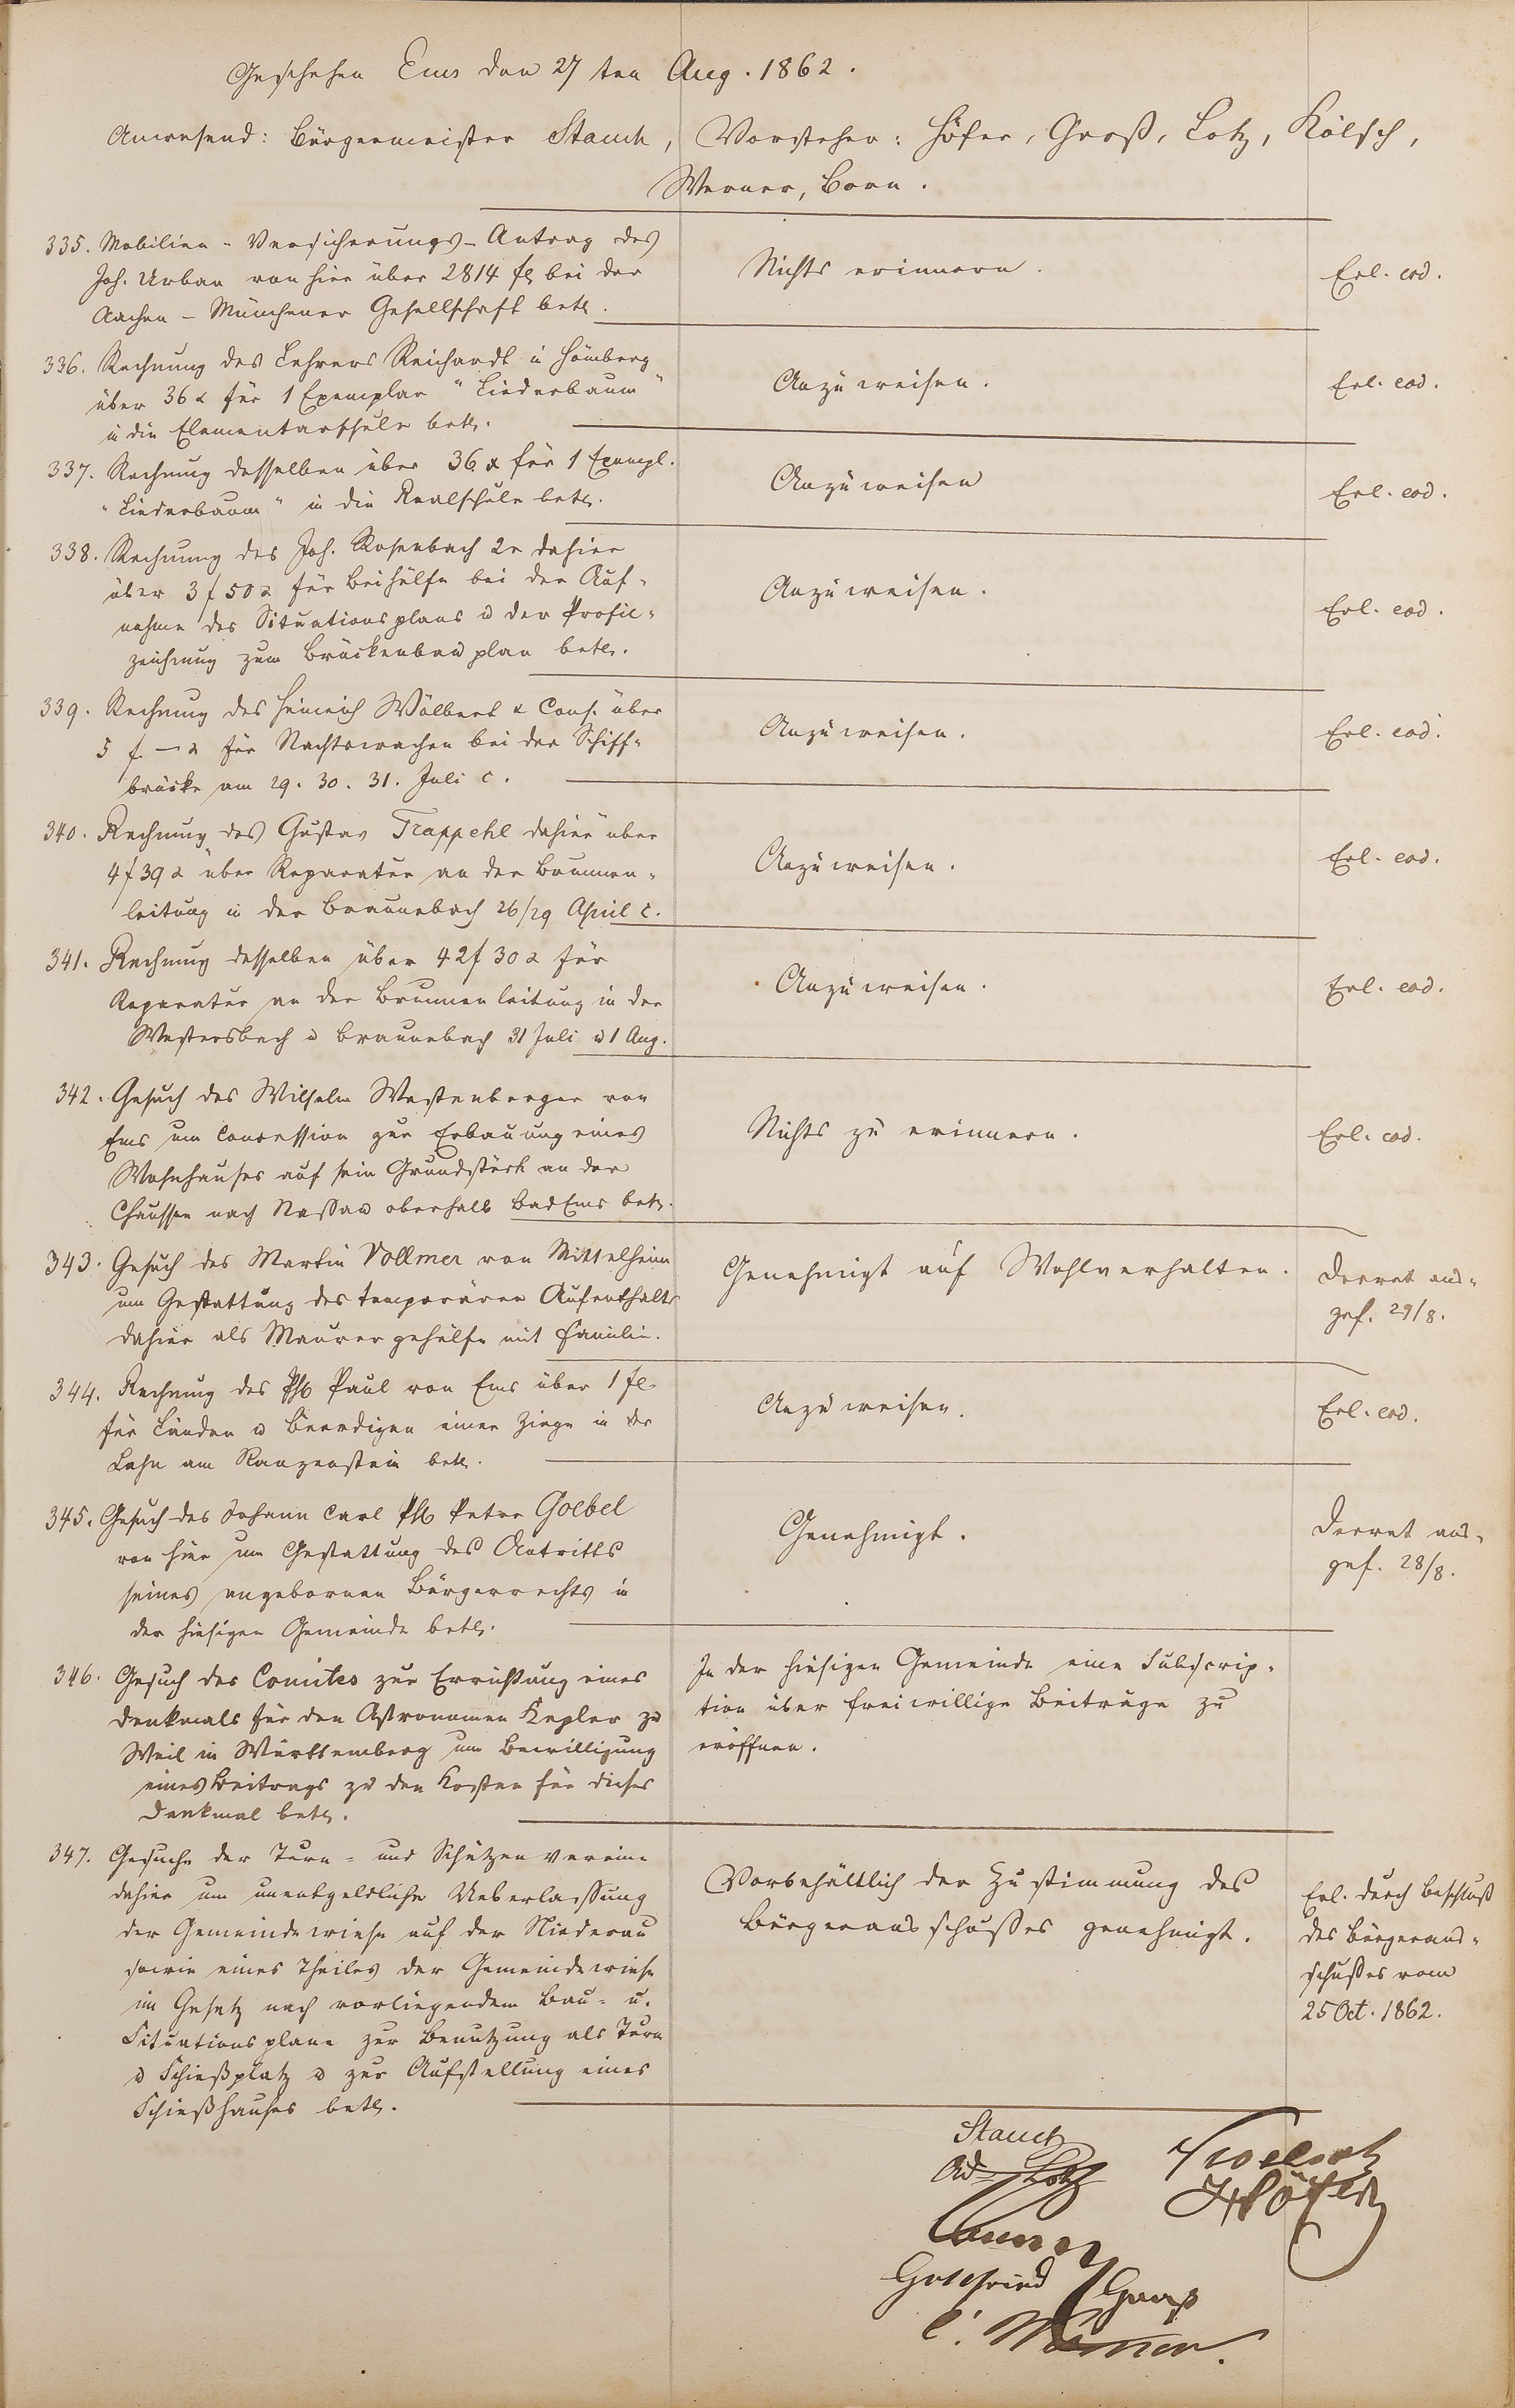 Geschehen Ems den 27ten Aug. 1862.
Anwesend: Bürgermeister Stauch, Vorsteher: Höfer, Groß, Lotz, Kölsch,
Werner, Born.
335. Mobilien-Versicherungs-Antrag des
Joh. Urban von hier über 2814 fl bei der
Aachen-Münchener Gesellschaft betr.
Nichts erinnern.
Erl. eod.
336. Rechnung des Lehrers Reichardt in Hömberg
über 36 x für 1 Exemplar "Liederbaum"
in die Elementarschule betr.
Anzuweisen.
Erl. eod.
337. Rechnung desselben über 36 x für 1 Exempl.
"Liederbaum" in die Realschule betr.
Anzuweisen
Erl. eod.
338. Rechnung des Joh. Rosenbach 2r dahier
über 3 f 50 x für Beihülfe bei der Auf-
nahme des Situationsplans u der Profil-
zeichnung zum Brückenbauplan betr.
Anzuweisen.
Erl. eod.
339. Rechnung des Heinrich Wölbert & Cons. über
5 f. – x für Nachtwachen bei der Schiff-
brücke am 29. 30. 31. Juli c.
Anzuweisen.
Erl. eod.
340. Rechnung des Gustav Trappehl dahier über
4 f 39 x über Reparatur an der Brunnen-
leitung in der Braunebach 26/29 April c.
Anzuweisen.
Erl. eod.
341. Rechnung desselben über 42 f 30 x für
Reparatur an der Brunnenleitung in der
Westersbach u Braunebach 31 Juli u 1 Aug.
Anzuweisen.
Erl. eod.
342. Gesuch des Wilhelm Westenberger von
Ems um Concession zur Erbauung eines
Wohnhauses auf sein Grundstück an der
Chaussee nach Nassau oberhalb Bad Ems betr.
Nichts zu erinnern.
Erl. eod.
343. Gesuch des Martin Vollmer von Mittelheim
um Gestattung des temporären Aufenthalts
dahier als Maurergehülfe mit Familie.
Genehmigt auf Wohlverhalten.
Decret aus-
gef. 29/8.
344. Rechnung des Ph Paul von Ems über 1 fl.
für Länden u Beerdigen einer Ziege in der
Lahn am Ranzenstein betr.
Anzuweisen.
Erl. eod.
345. Gesuch des Johann Carl Ph Peter Goebel
von hier um Gestattung des Antritts
seines angebornen Bürgerrechts in
der hiesigen Gemeinde betr.
Genehmigt.
Decret aus-
gef. 28/8.
346. Gesuch des Comites zur Errichtung eines
Denkmals für den Astronomen Kepler zu
Weil in Württemberg um Bewilligung
eines Beitrags zu den Kosten für dieses
Denkmal betr.
In der hiesigen Gemeinde eine Subscrip-
tion über freiwillige Beiträge zu
eröffnen.
347. Gesuche der Turn- und Schützenvereine
dahier um unentgeldliche Ueberlassung
der Gemeindewiese auf der Niederau
sowie eines Theiles der Gemeindewiese
im Gesetz nach vorliegendem Bau- u.
Situationsplane zur Benutzung als Turn
u Schießplatz u zur Aufstellung eines
Schießhauses betr.
Vorbehältlich der Zustimmung des
Bürgerausschusses genehmigt.
Erl. durch Beschluß
des Bürgeraus-
schusses vom
25 Oct. 1862.
Stauch
Ad Lotz
Koelsch
Höfer
Gottfried Groß
C. Werner.